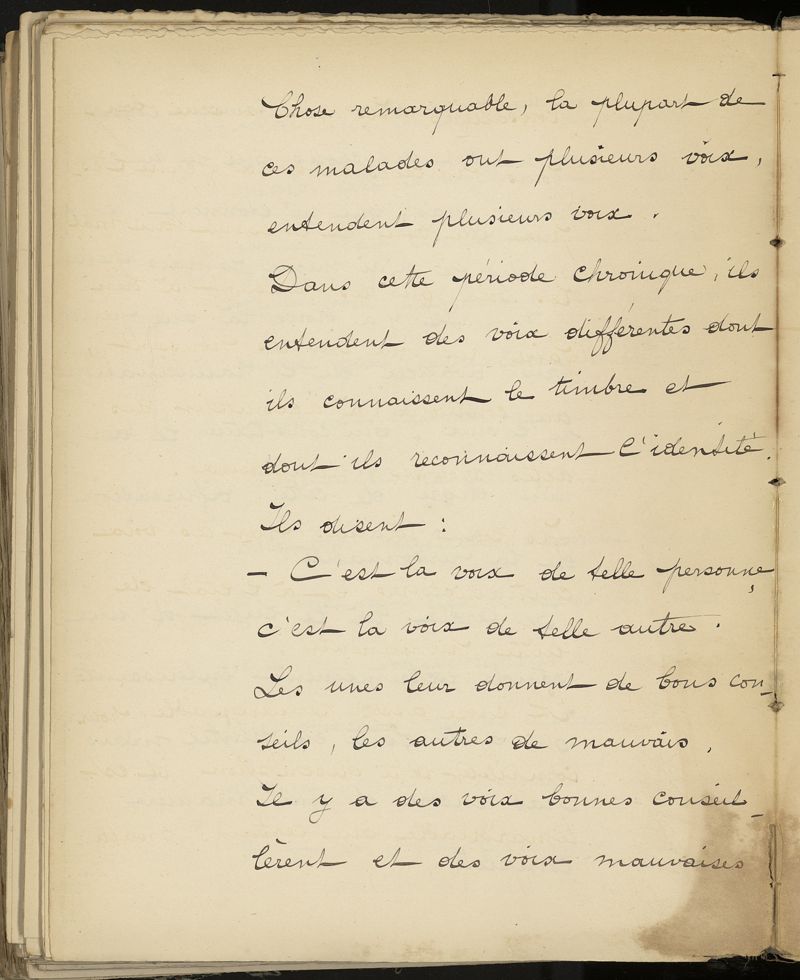 Chose remarquable, la plupart de
ces malades ont plusieurs voix,
entendent plusieurs voix.
Dans cette période chronique, ils
entendent des voix différentes dont
ils connaissent le timbre et
dont ils reconnaissent l'identité.
Ils disent :
- C'est la voix de telle personne,
c'est la voix de telle autre.
Les unes leur donnent de bons con-
seils, les autres de mauvais.
Il y a des voix bonnes conseil-
lèrent et des voix mauvaises